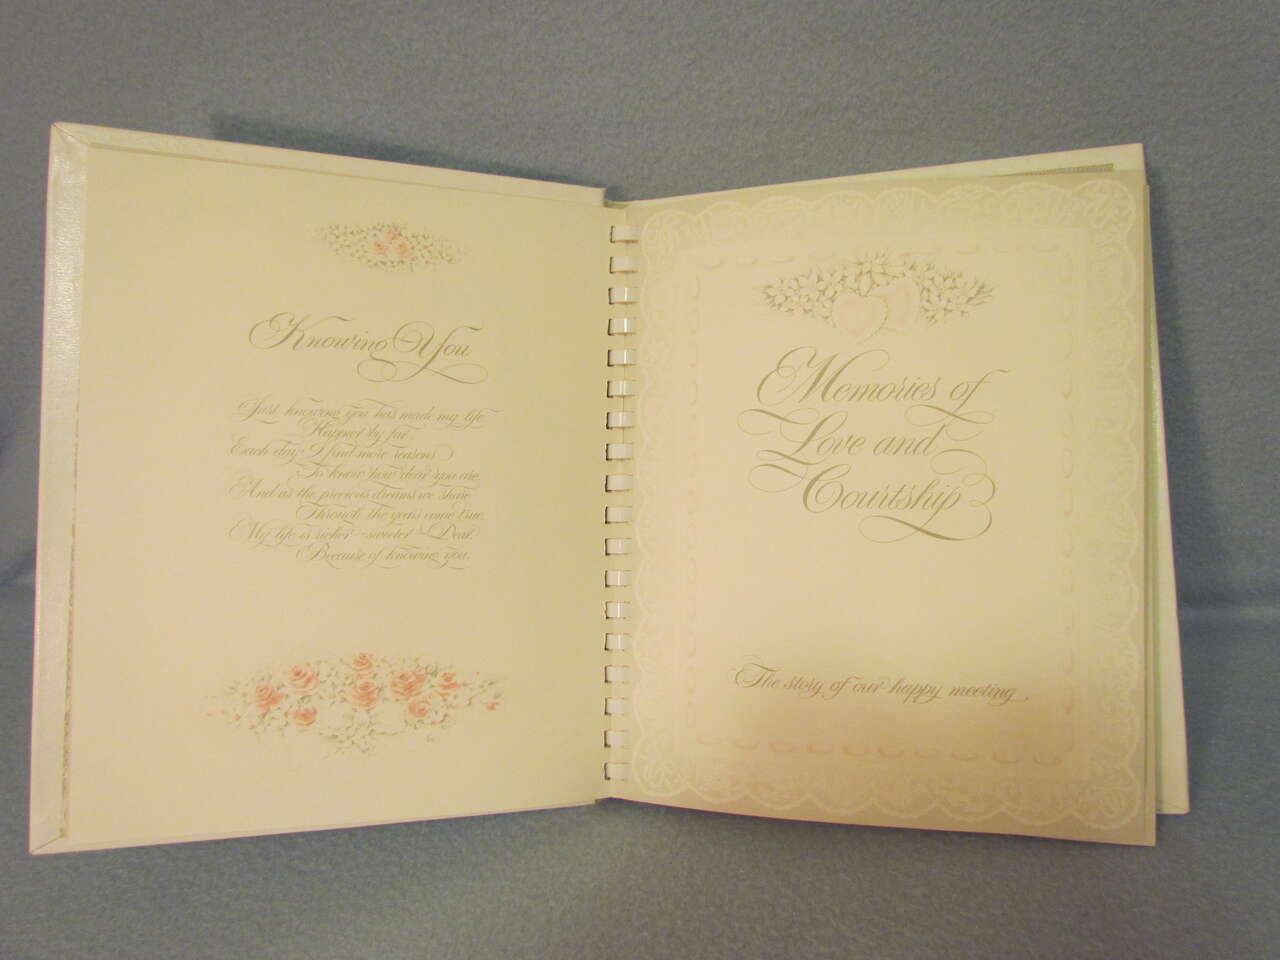 Knowing You
Just knowing you has made my life
Happier by far.
Each day I find more reasons
To know how dear you are.
And as the precious dreams we share
Through the years come true,
My life is richer—sweeter—Dear,
Because of knowing you.
Memories of
Love and
Courtship
The story of our happy meeting